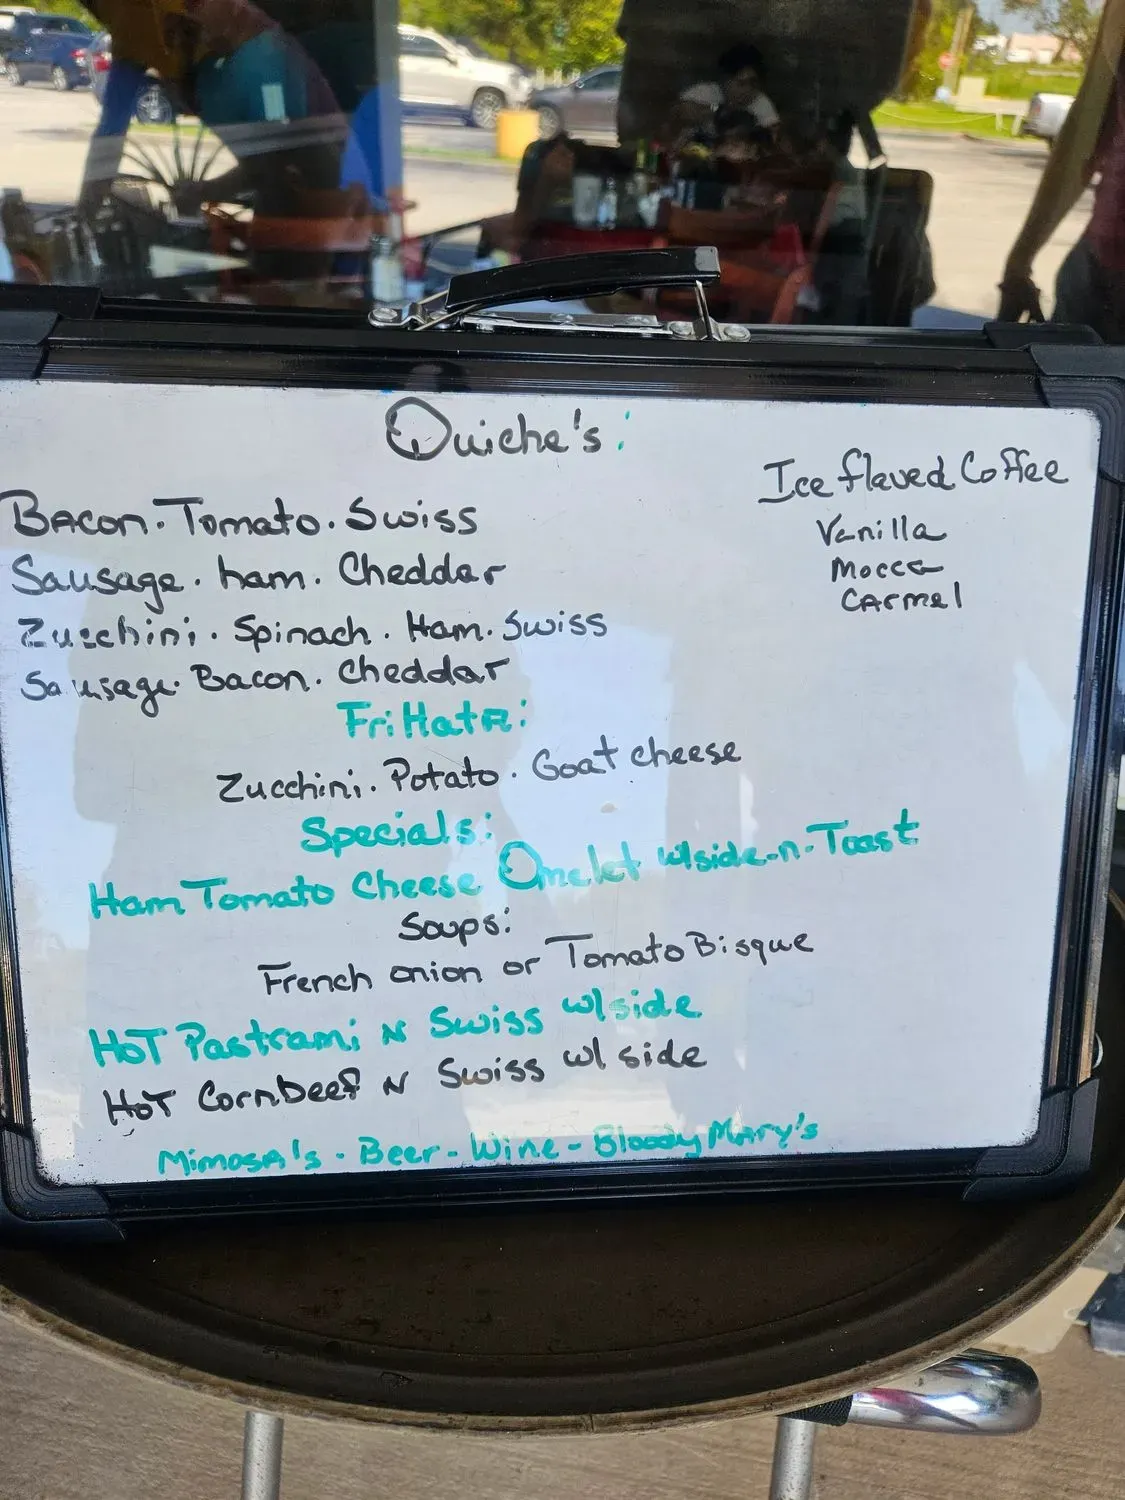 Quiche's:
Bacon. Tomato. Swiss
Sausage. ham. Cheddar
Zucchini. Spinach. Ham. Swiss
Sausage. Bacon. Cheddar
FriHata:
Zucchini. Potato. Goat cheese
Specials:
Ham Tomato Cheese Omelet w/side-n-Toast
Soups:
French onion or Tomato Bisque
HoT Pastrami N Swiss w/side
HoT Cornbeef N Swiss w/ side
Mimosa's - Beer - Wine - Bloody Mary's
Ice flaved Coffee
Vanilla
Mocca
Carmel